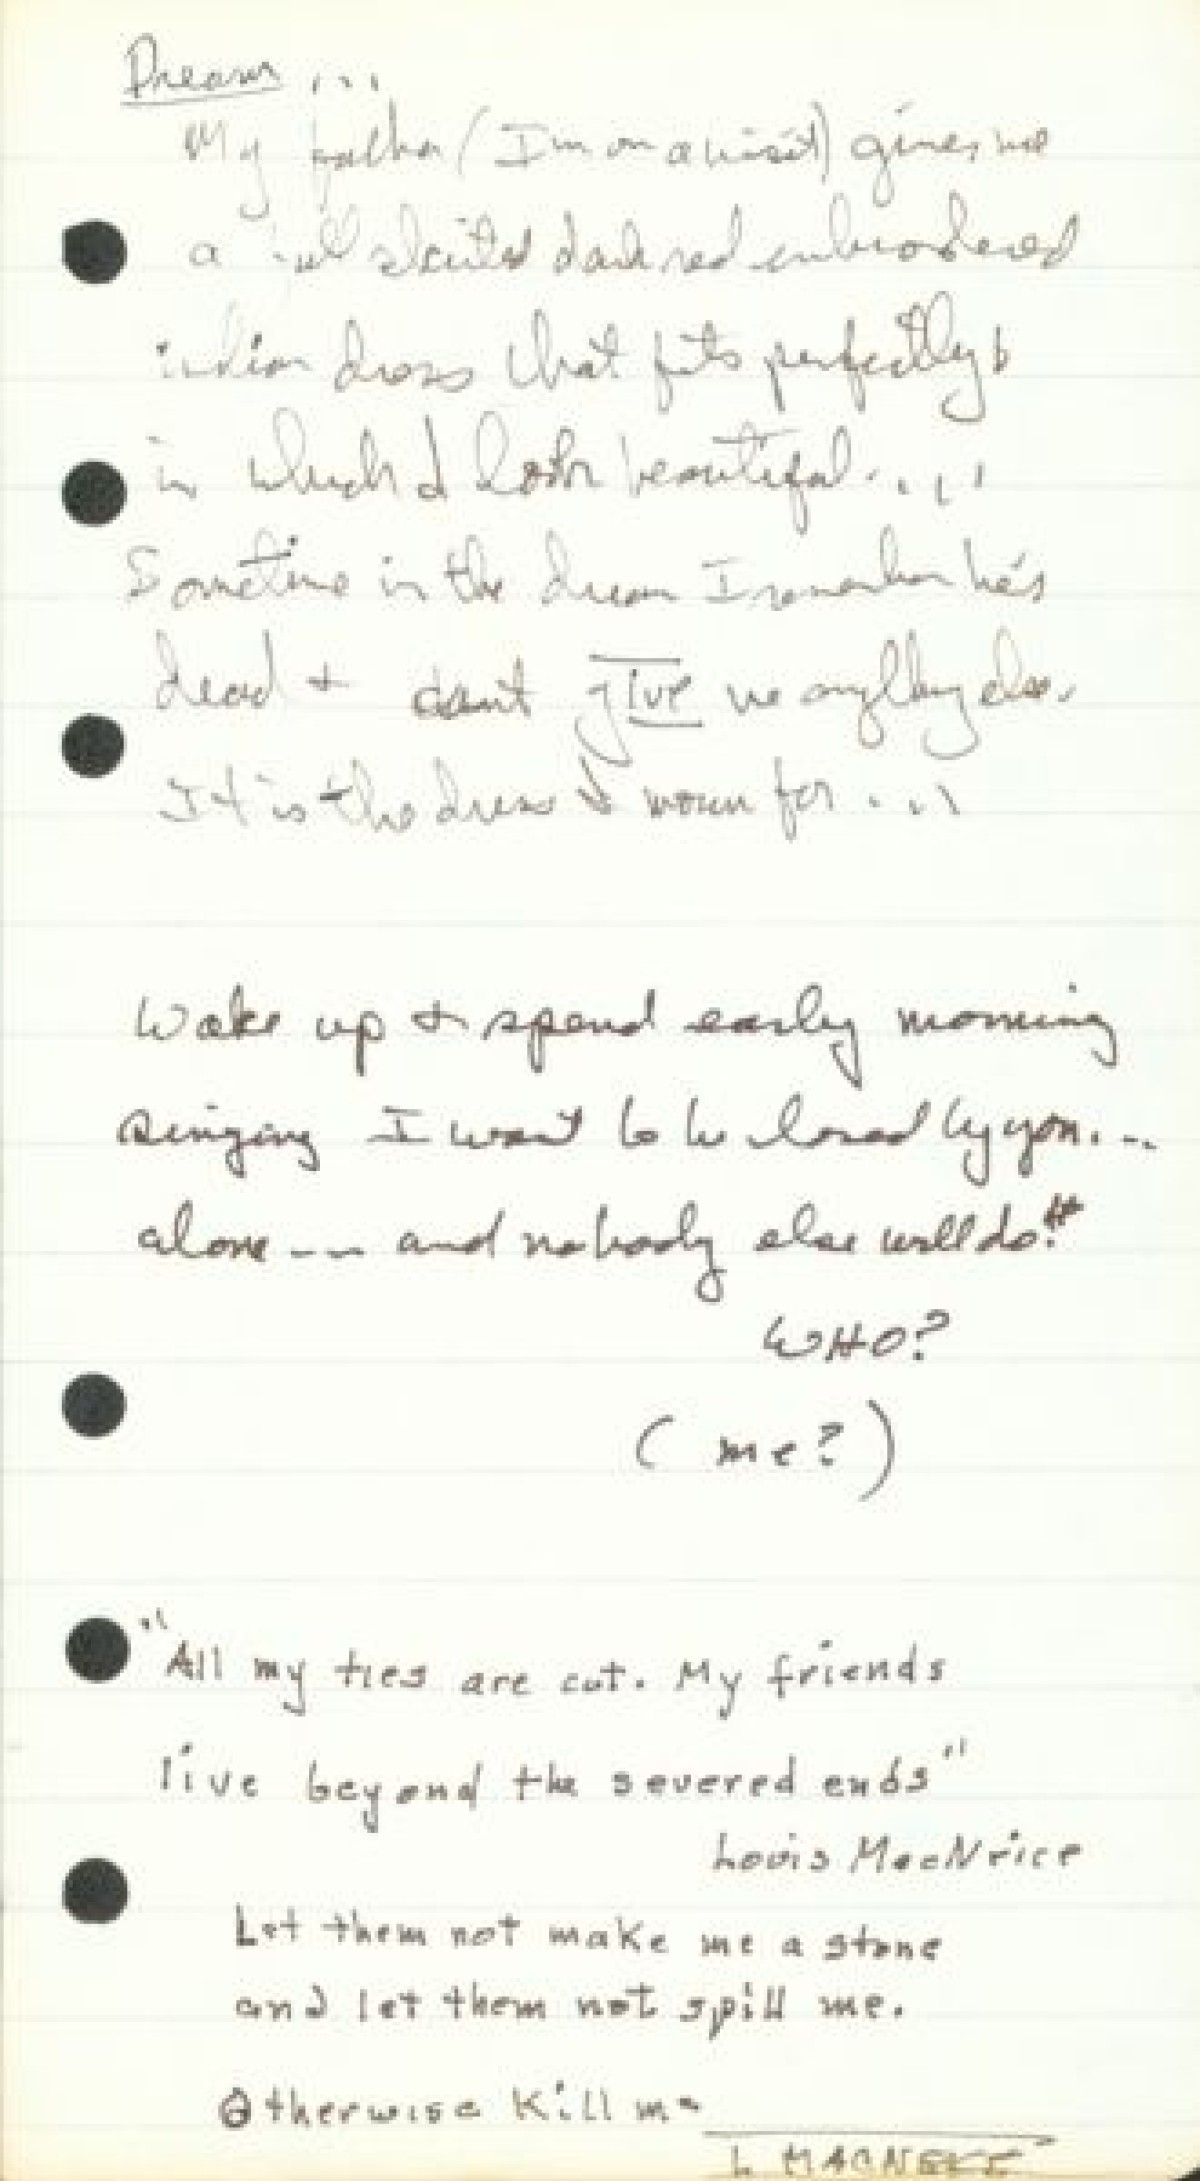 Dream ...
My father (I'm on a visit) gives me
a full skirted dark red embroidered
indian dress that fits perfectly &
in which I look beautiful....
Sometime in the dream I remember he's
dead & can't give me anything else.
It is the dress I mourn for....
Wake up & spend early morning
singing I want to be loved by you...
alone --- and nobody else will do!"
WHO?
(me?)
"All my ties are cut. My friends
live beyond the severed ends"
Louis MacNeice
Let them not make me a stone
and let them not spill me.
Otherwise Kill me
L MACNEICE